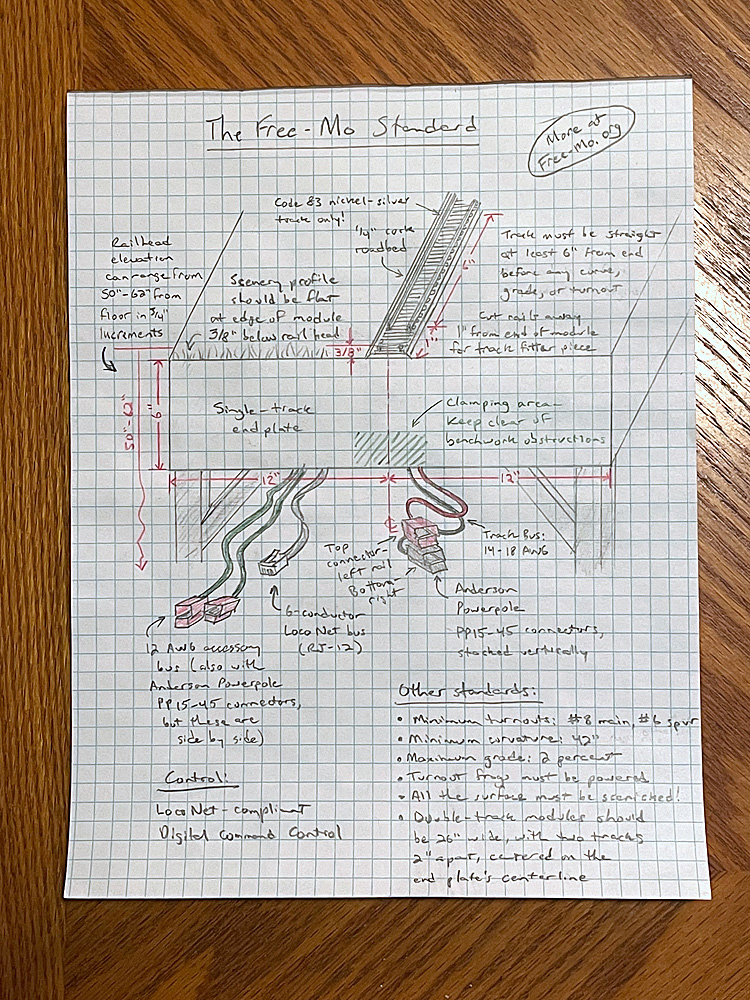 The Free-Mo Standard
More at
Free-Mo.org
Code 83 nickel-silver
track only!
1/4" cork
roadbed
Railhead
elevation
can range from
50"-62" from
floor in 3/4"
increments
Scenery profile
should be flat
at edge of module
3/8" below rail head
Track must be straight
at least 6" from end
before any curve,
grade, or turnout
Cut rails away
1" from end of module
for track fitter piece
6"
1"
3/8"
50"-62"
6"
Single-track
end plate
Clamping area-
Keep clear of
benchwork obstructions
12"
12"
℄
Top
connector-
left rail
Bottom-
right
Track Bus:
14-18 AWG
6-conductor
LocoNet bus
(RJ-12)
Anderson
Powerpole
PP15-45 connectors,
stacked vertically
12 AWG accessory
bus (also with
Anderson Powerpole
PP15-45 connectors,
but these are
side by side)
Control:
LocoNet-compliant
Digital Command Control
Other standards:
• Minimum turnouts: #8 main, #6 spur
• Minimum curvature: 42"
• Maximum grade: 2 percent
• Turnout frogs must be powered
• All the surface must be scenicked!
• Double-track modules should
be 26" wide, with two tracks
2" apart, centered on the
end plate's centerline